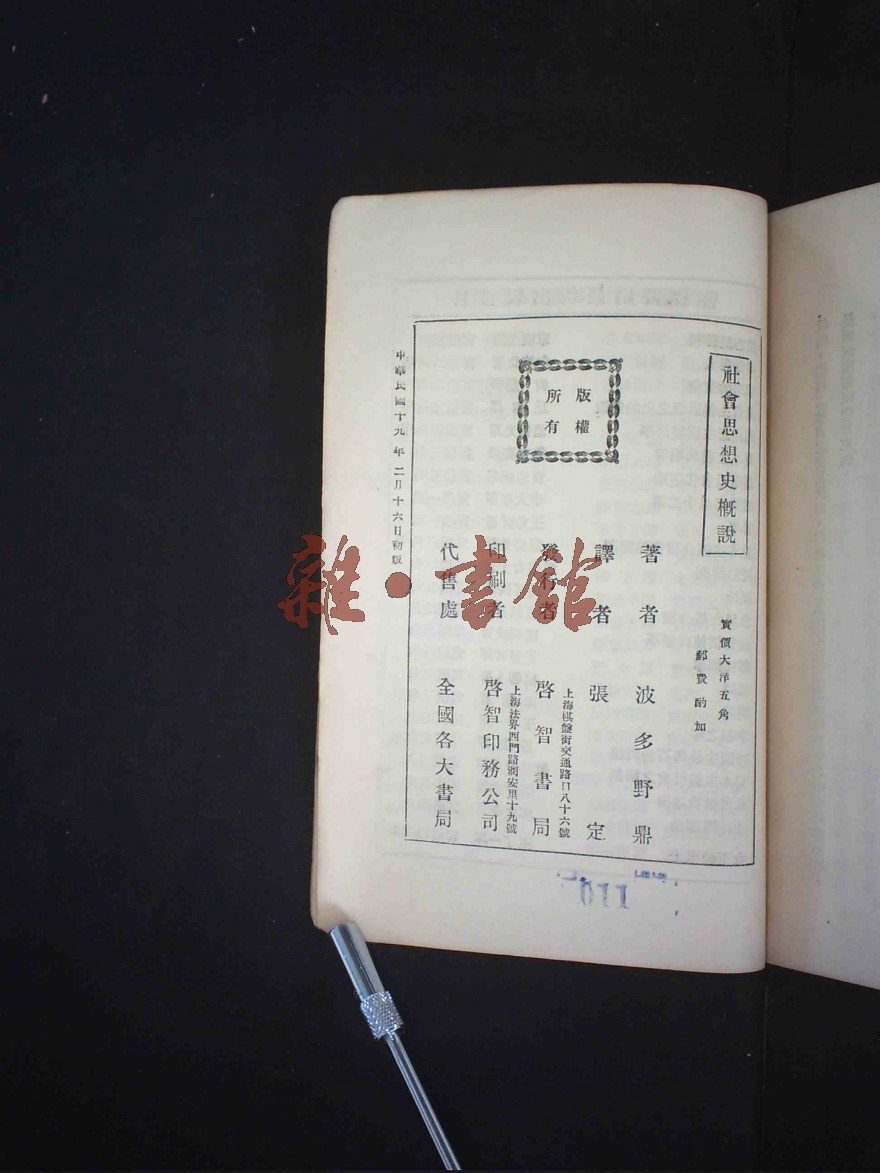 社會思想史概說
實價大洋五角
郵費酌加
版權
所有
著者 波多野鼎
譯者 張定
上海棋盤街交通路口八十六號
發行者 啓智書局
上海法界西門路潤安里十九號
印刷者 啓智印務公司
代售處 全國各大書局
中華民國十九年二月十六日初版
雜·書館
110